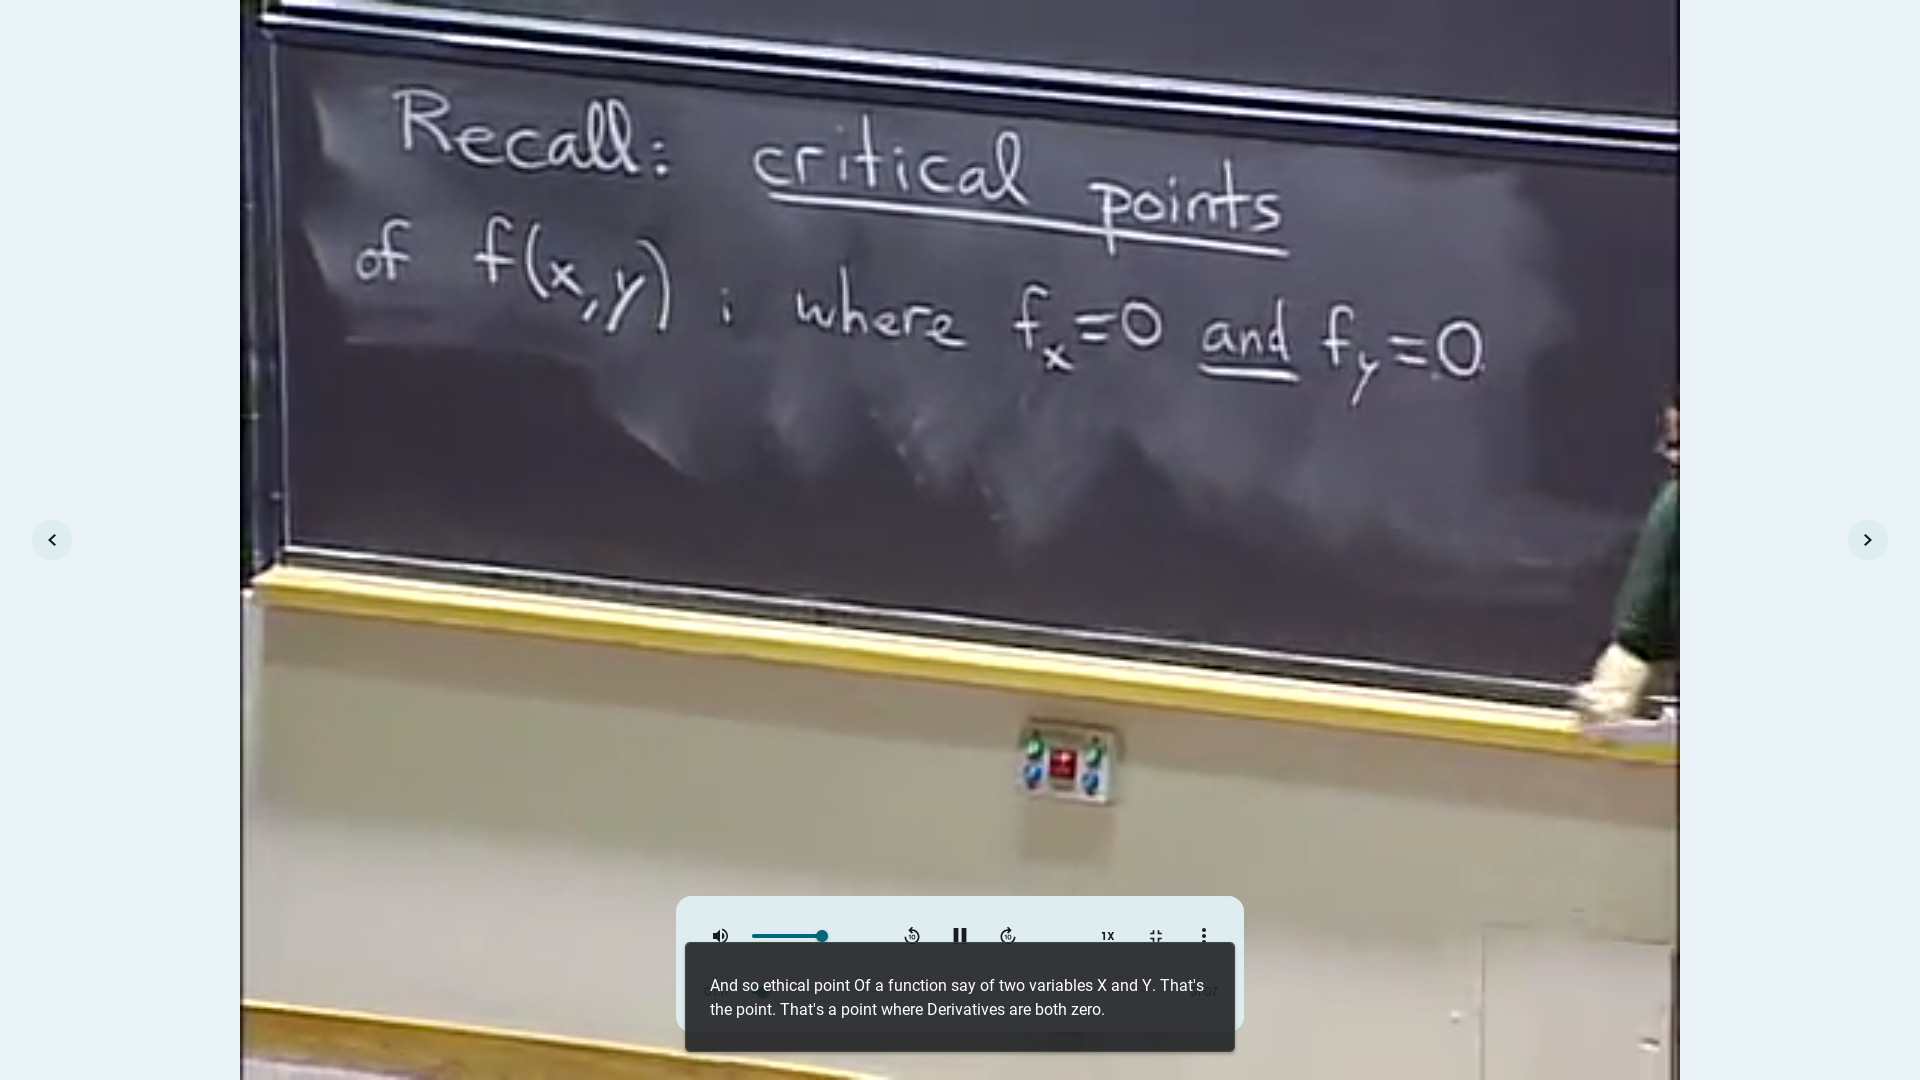 Recall: critical points
of f(x,y) ; where fx=0 and fy=0
1X
And so ethical point Of a function say of two variables X and Y. That's
the point. That's a point where Derivatives are both zero.